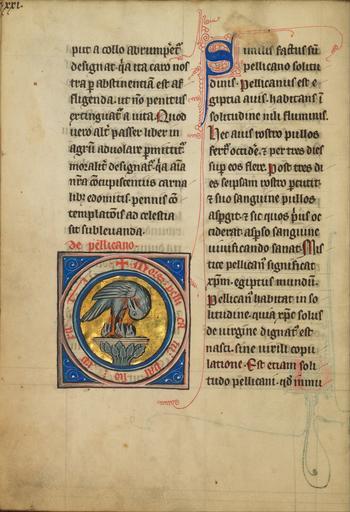 xxi.
pur a collo abrumpet͛
designat. q̃a ita caro nos
tra p abstinentiam est af
fligenda. ut nō penitus
extinguat͛ a uita. Quod
uero alt͛ passer liber in
agrū aduolare pmittit͛
moralit͛ designat͛. q̃a aīa
nr̃a cōcupiscentiis carna
lib; edomitis. pennis cō
templatōis ad celestia
sit subleuanda.
de pellicano.
Similis factus sū
pellicano solitu
dinis. Pellicanus est e
giptia auis. habitans ī
solitudine nili fluminis.
Hec auis rostro pullos
fert͛ occide͛. ⁊ per tres dies
sup eos flere. Post tres di
es seipsam rostro percutit.
⁊ suo sanguine pullos
aspgit. ⁊ sic quos p̃us oc
ciderat. aspso sanguine
uiuificando sanat. Mis
tice pellican͛ significat
xp̄m. egiptus mundū.
Pellican͛ habitat in so
litudine. quia xp̄c solus
de uirgine dignat͛ est
nasci. sine uirili copu
latione. Est etiam soli
tudo pellicani. qd̄ inmu